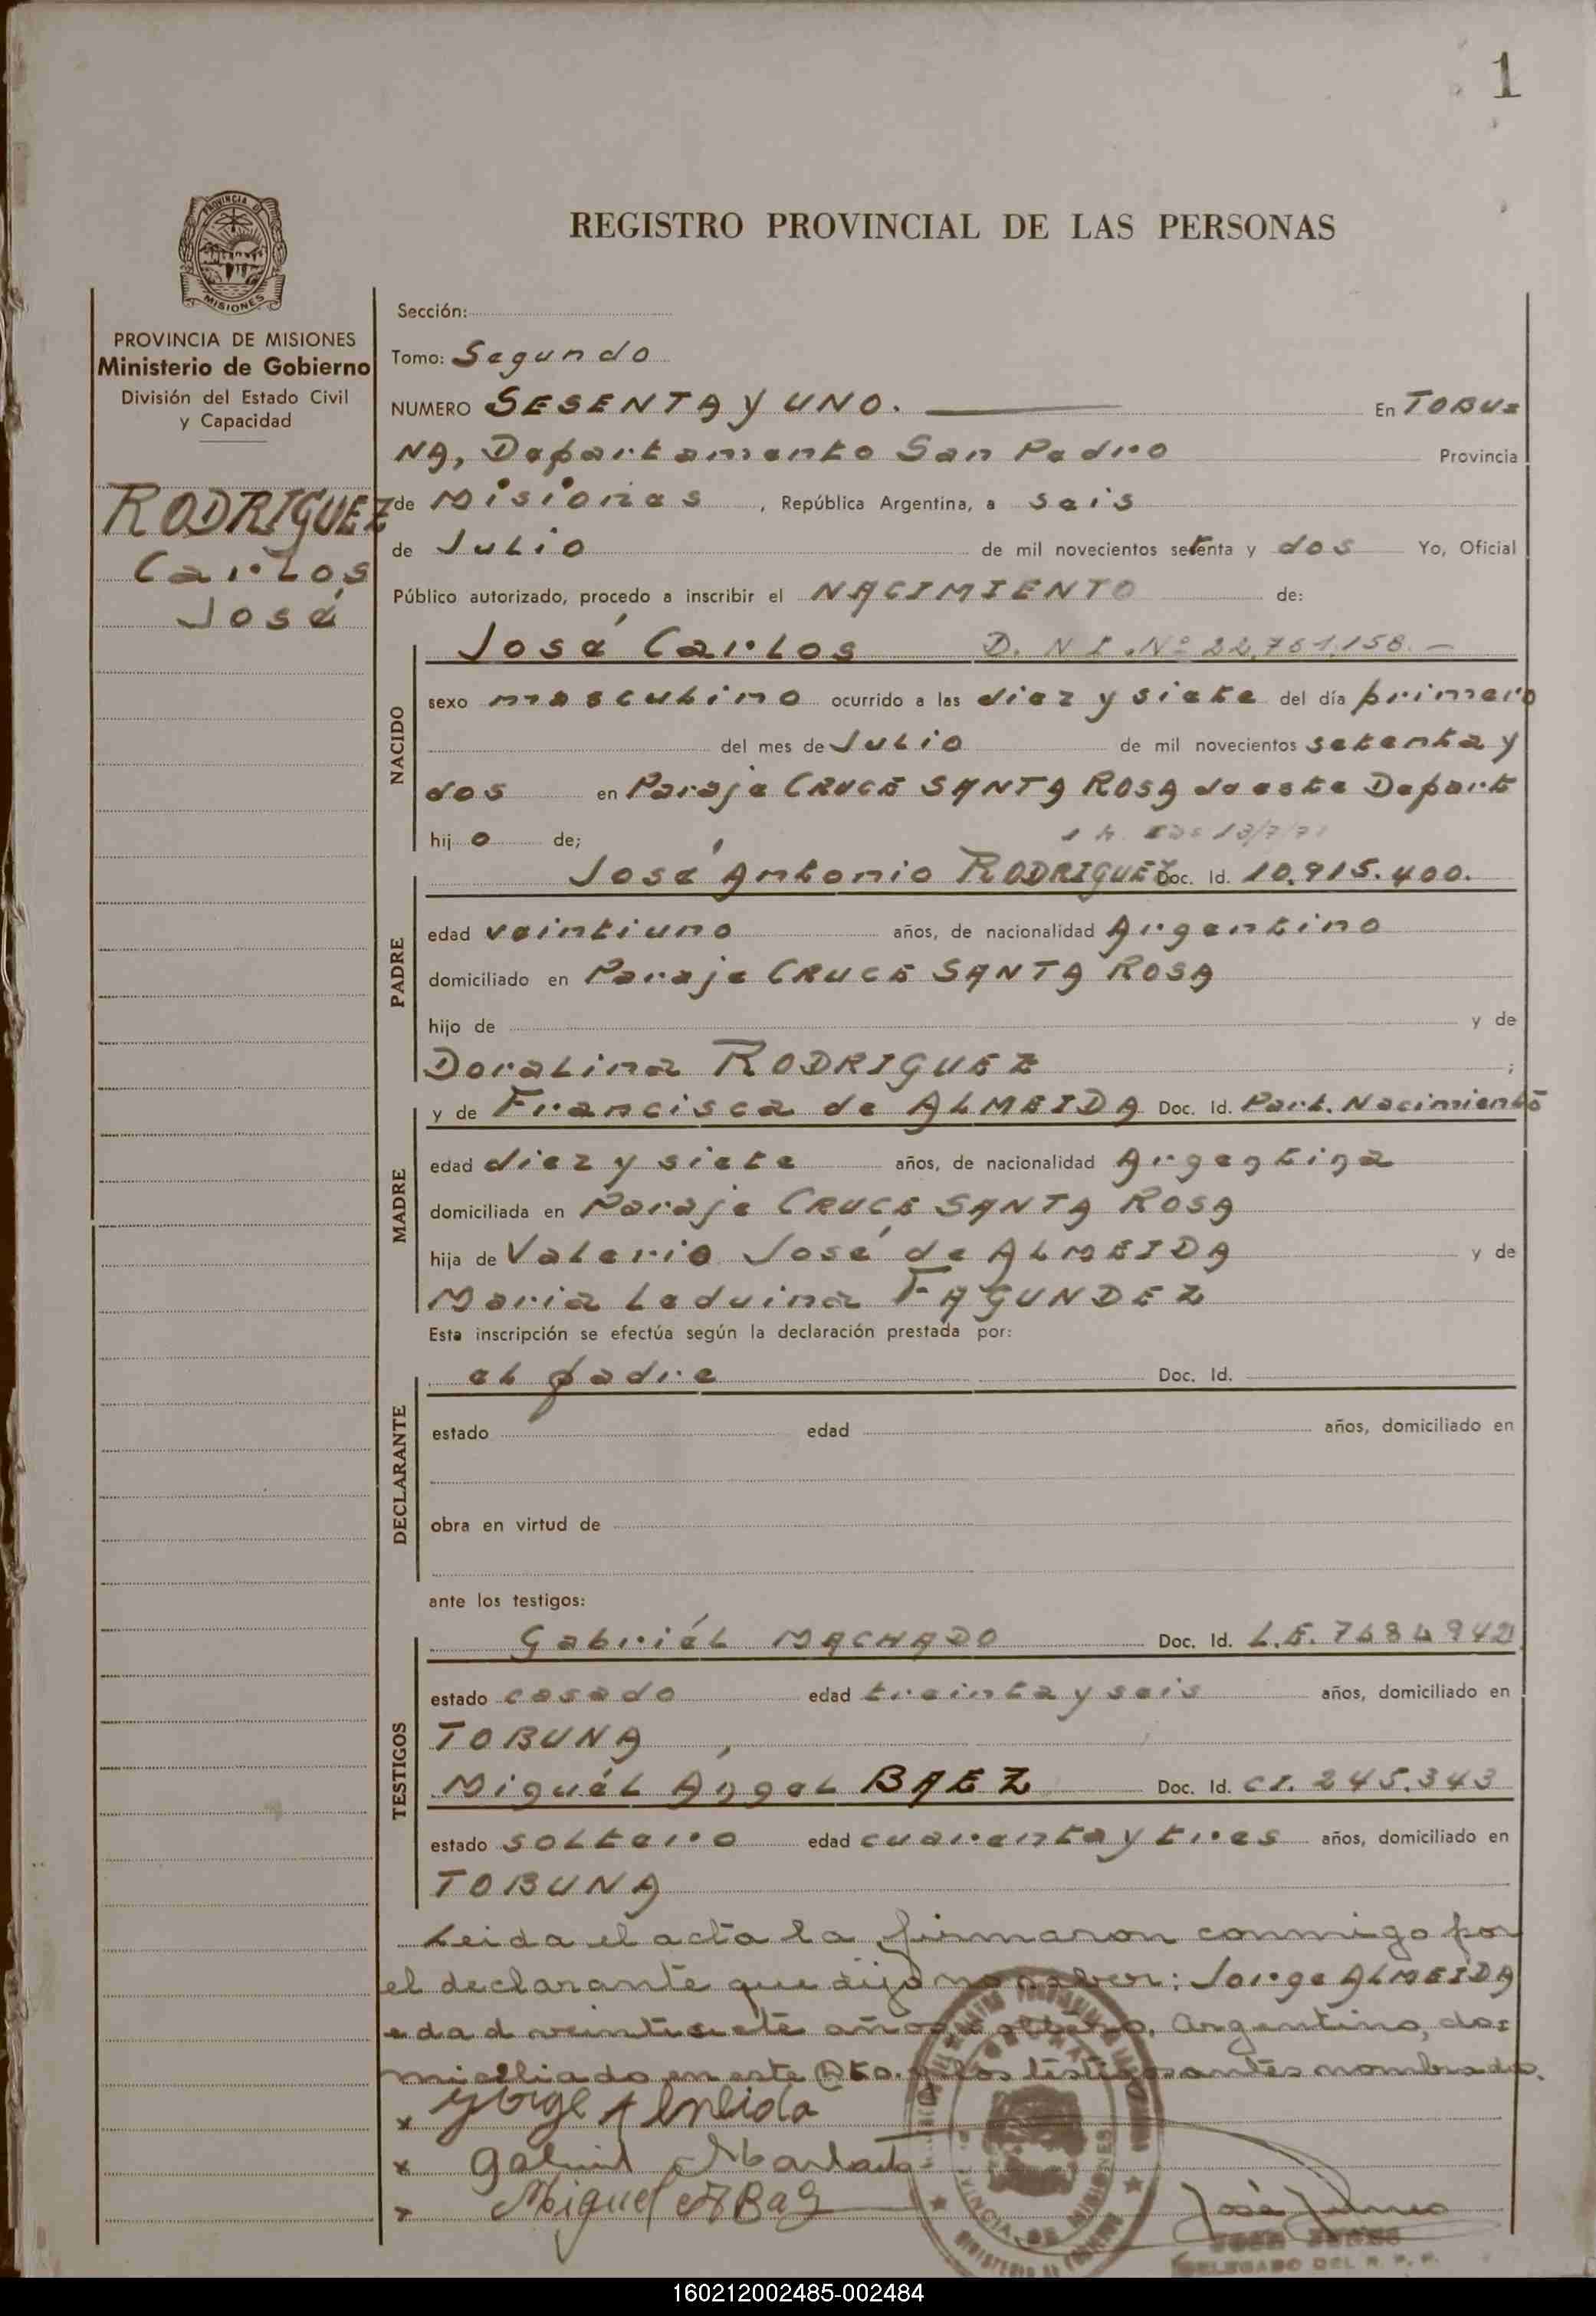 1
REGISTRO PROVINCIAL DE LAS PERSONAS
PROVINCIA DE MISIONES
Ministerio de Gobierno
División del Estado Civil
y Capacidad
RODRIGUEZ
Carlos
José
Sección:
Tomo: Segundo
NUMERO SESENTA Y UNO. En TOBU=
NA, Departamento San Pedro Provincia
de Misiones, República Argentina, a seis
de Julio de mil novecientos setenta y dos Yo, Oficial
Público autorizado, procedo a inscribir el NACIMIENTO de:
José Carlos D. N I. Nº 22,761,158.-
NACIDO
sexo masculino ocurrido a las diez y siete del día primero
del mes de Julio de mil novecientos setenta y
dos en Paraje CRUCE SANTA ROSA de este Depart
hij o de;
José Antonio RODRIGUEZ Doc. Id. 10.915.400.
PADRE
edad veintiuno años, de nacionalidad Argentino
domiciliado en Paraje CRUCE SANTA ROSA
hijo de y de
Doralina RODRIGUEZ ;
y de Francisca de ALMEIDA Doc. Id. Part. Nacimiento
MADRE
edad diez y siete años, de nacionalidad Argentina
domiciliada en Paraje CRUCE SANTA ROSA
hija de Valerio José de ALMEIDA y de
Maria Leduina FAGUNDEZ
Esta inscripción se efectúa según la declaración prestada por:
el padre Doc. Id.
DECLARANTE
estado edad años, domiciliado en
obra en virtud de
ante los testigos:
Gabriél MACHADO Doc. Id. L.E.
TESTIGOS
estado casado edad treinta y seis años, domiciliado en
TOBUNA,
Miguél Angel BAEZ Doc. Id. CI. 245.343
estado soltero edad cuarenta y tres años, domiciliado en
TOBUNA
Leida el acta la firmaron conmigo por
el declarante que dijo no saber: Jorge ALMEIDA
edad veintisiete años, soltero, Argentino, do=
miciliado en este Dto. y los testigos antes nombrados.
x Jorge Almeida
x Gabriel Machado
x Miguel A Baez
DELEGADO DEL R. P. P.
160212002485-002484